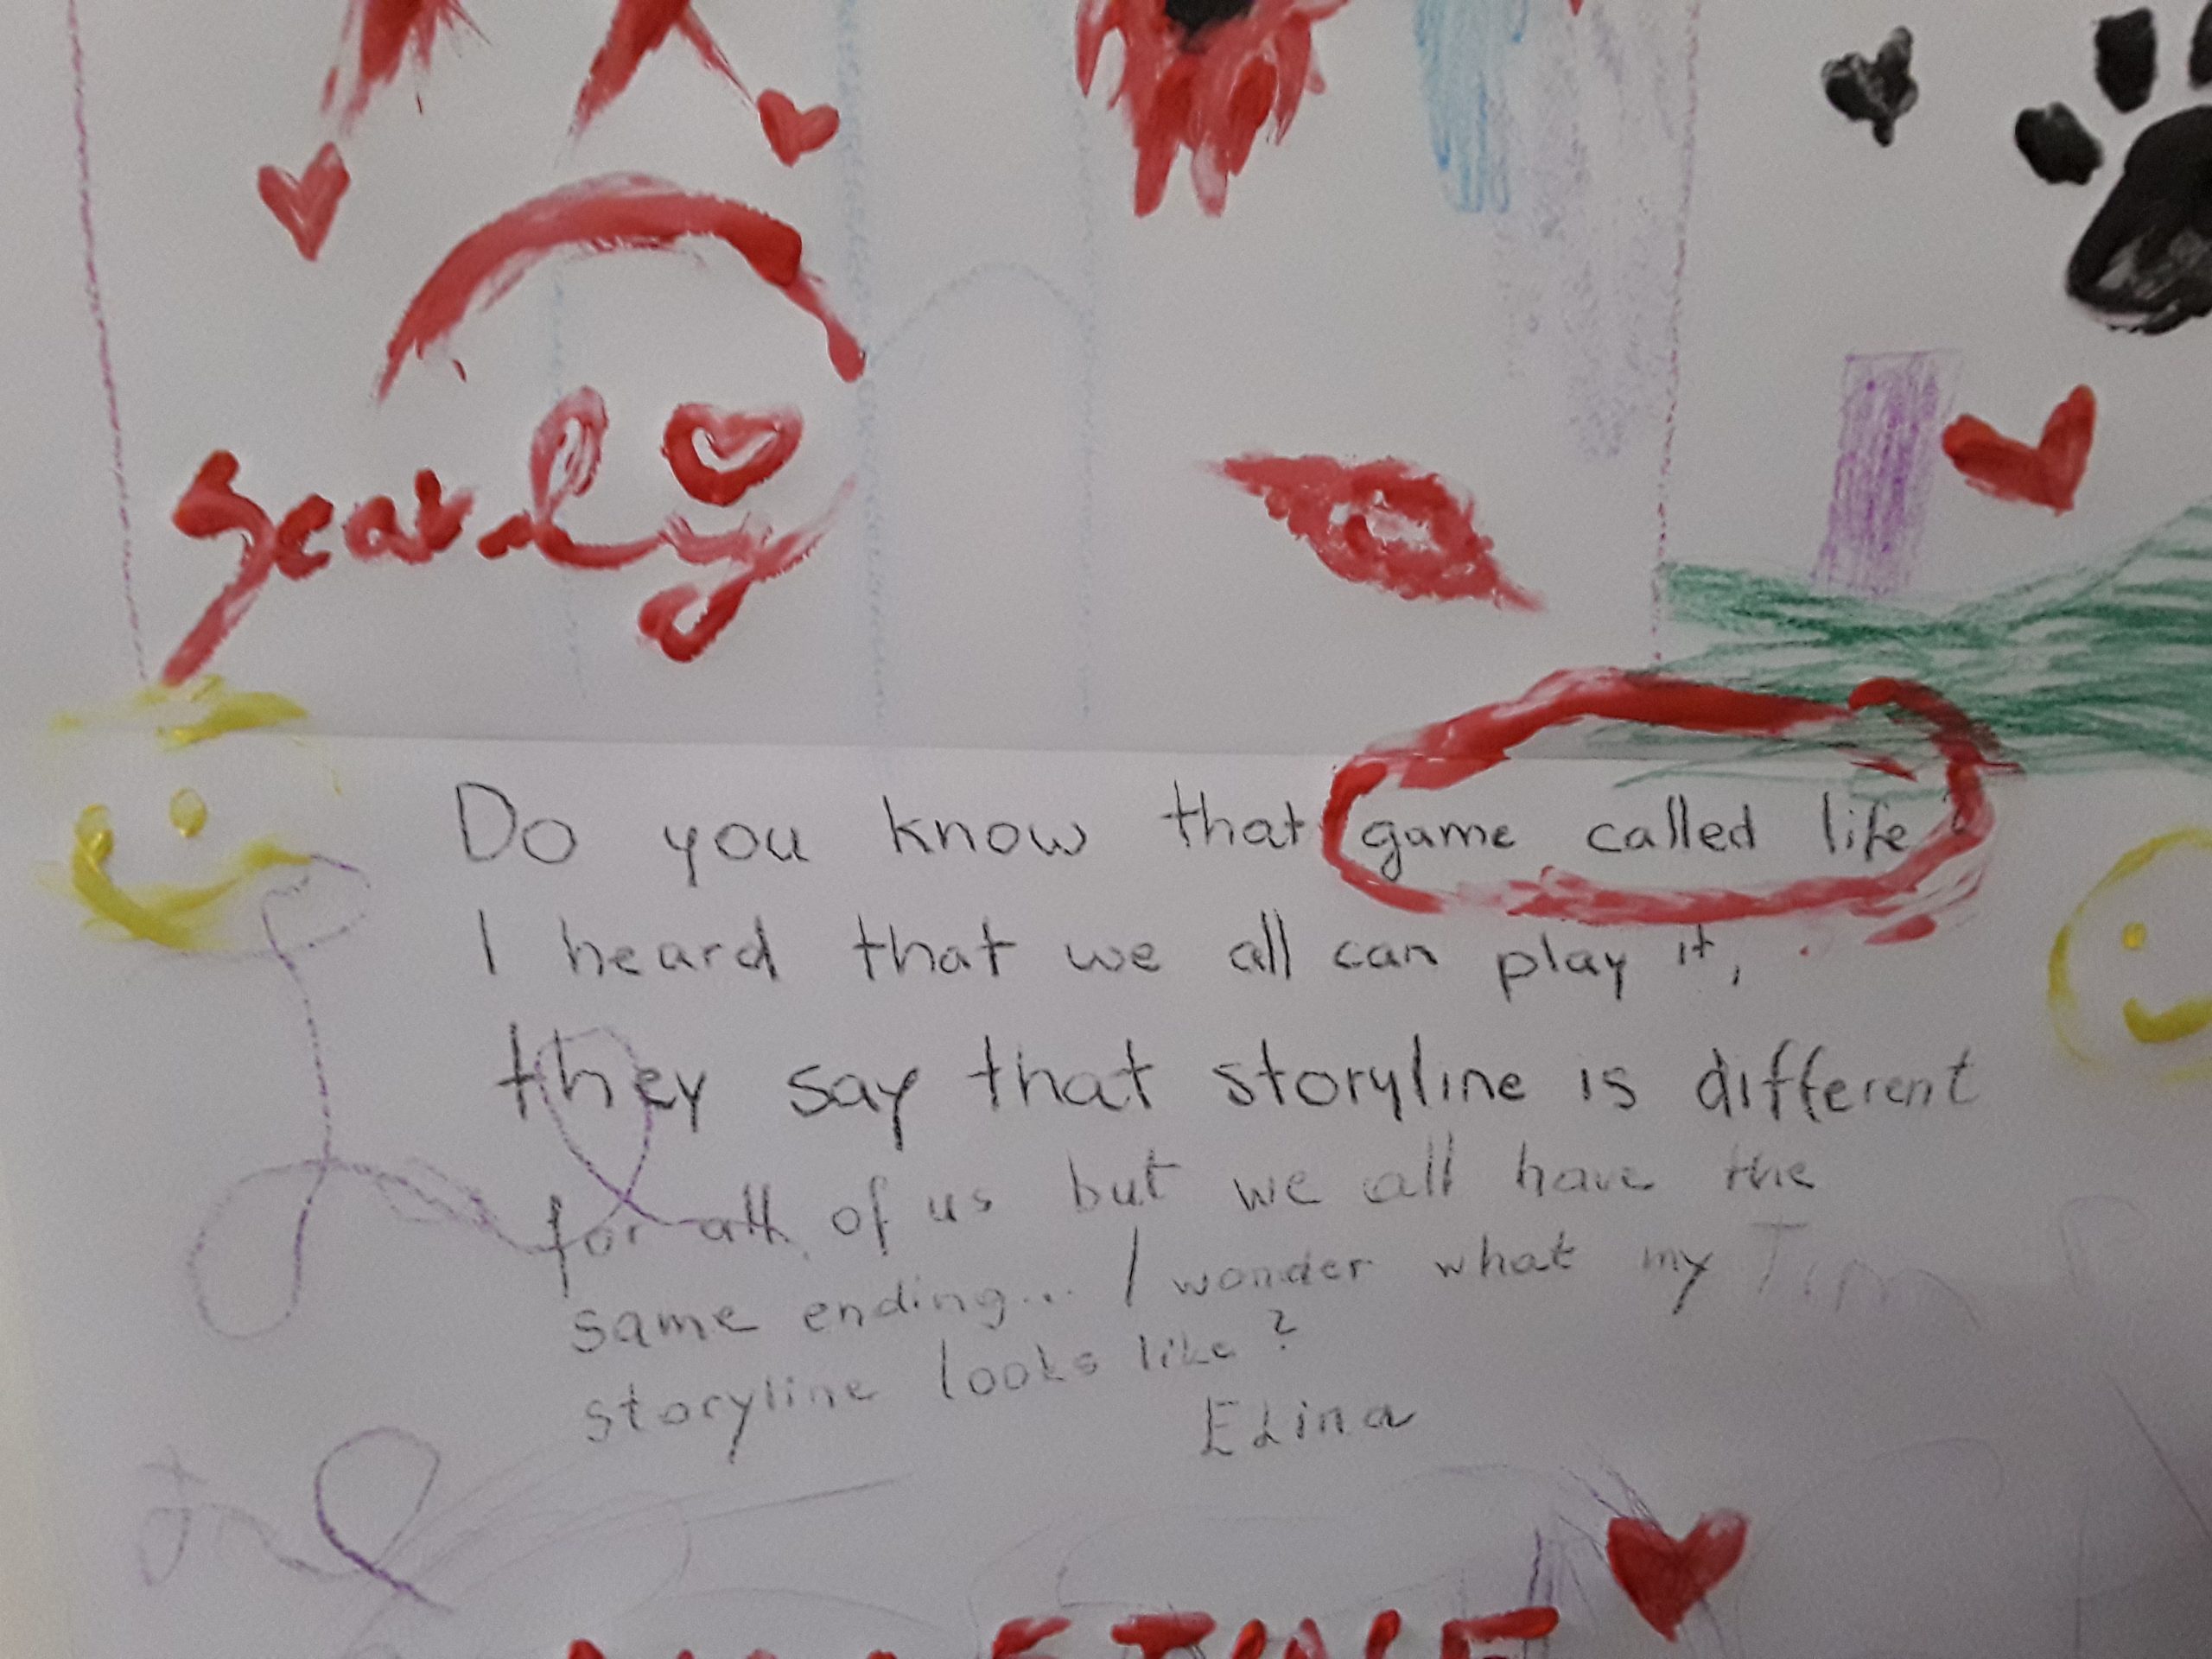 Do you know that game called life?
I heard that we all can play it,
they say that storyline is different
for all of us but we all have the
same ending... I wonder what my
storyline looks like?
Elina